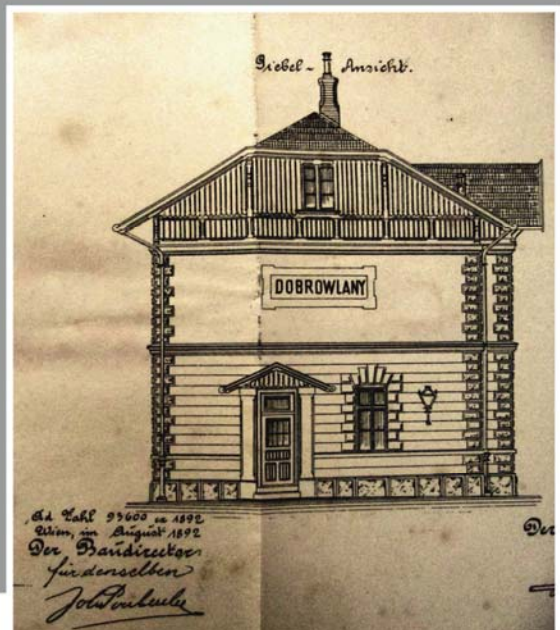 Giebel - Ansicht.
DOBROWLANY
Ad Zahl 93600 ex 1892
Wien, im August 1892
Der Baudirector
für denselben
Der